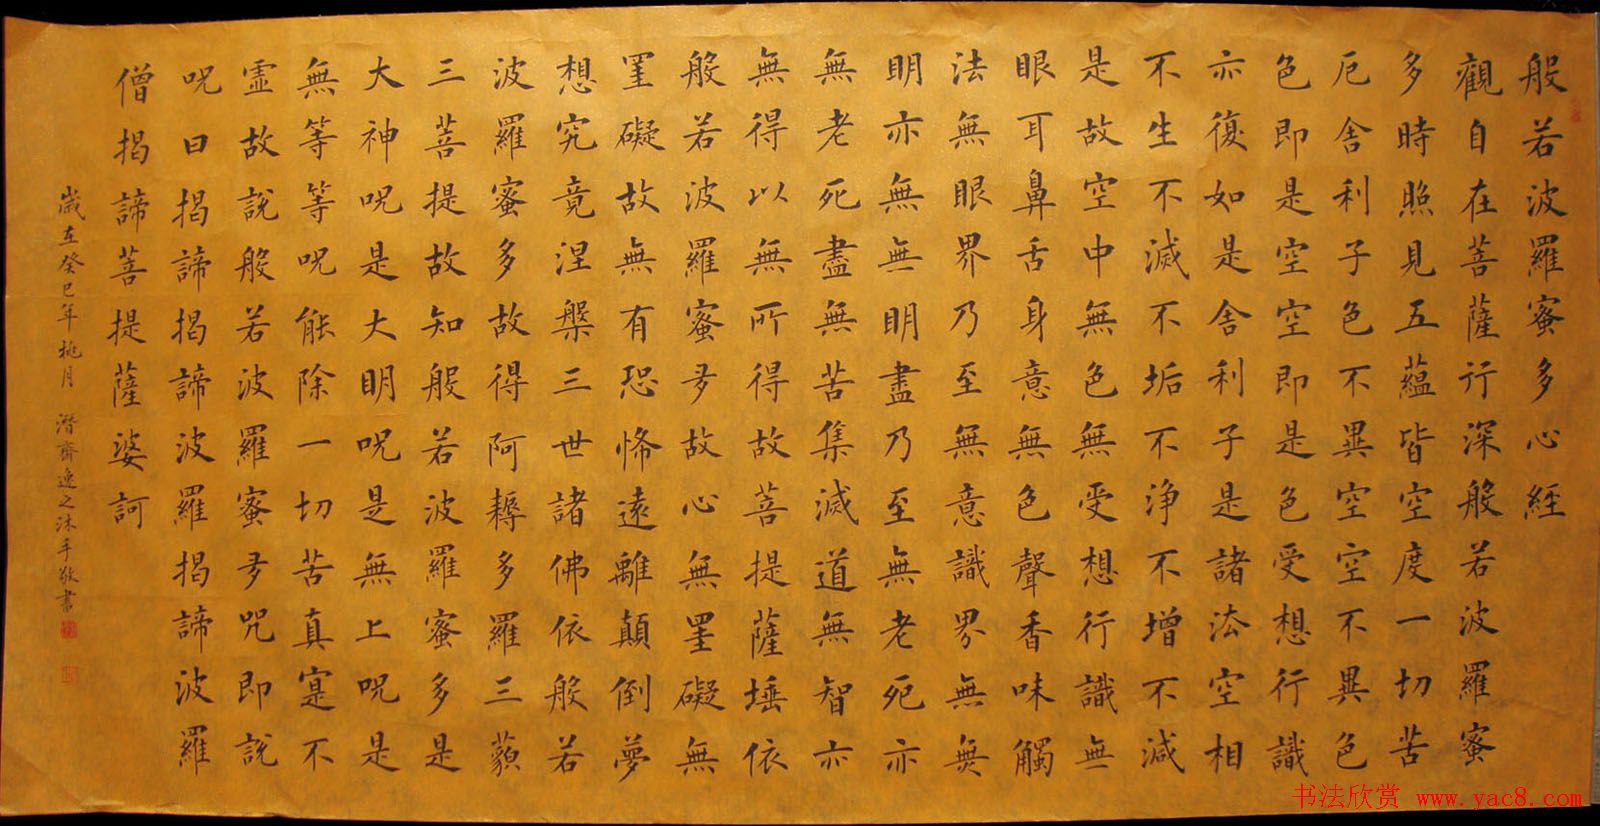 般若波羅蜜多心經
觀自在菩薩行深般若波羅蜜
多時照見五蘊皆空度一切苦
厄舍利子色不異空空不異色
色即是空空即是色受想行識
亦復如是舍利子是諸法空相
不生不滅不垢不淨不增不減
是故空中無色無受想行識無
眼耳鼻舌身意無色聲香味觸
法無眼界乃至無意識界無無
明亦無無明盡乃至無老死亦
無老死盡無苦集滅道無智亦
無得以無所得故菩提薩埵依
般若波羅蜜多故心無罣礙無
罣礙故無有恐怖遠離顛倒夢
想究竟涅槃三世諸佛依般若
波羅蜜多故得阿耨多羅三藐
三菩提故知般若波羅蜜多是
大神呪是大明呪是無上呪是
無等等呪能除一切苦真寔不
虛故說般若波羅蜜多呪即說
呪曰揭諦揭諦波羅揭諦波羅
僧揭諦菩提薩婆訶
歲在癸巳年桃月 潛齋逸之沐手敬書
书法欣赏 www.yac8.com